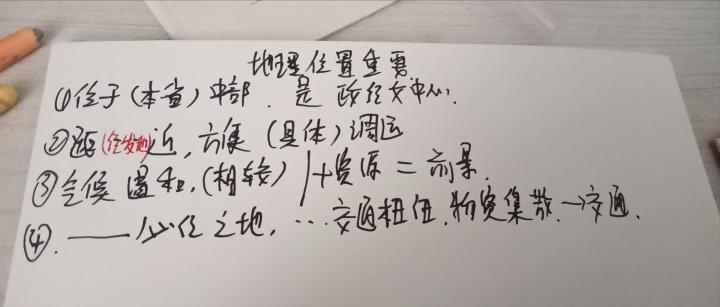 地理位置重要
①位于(本省)中部.是政经文中心.
②距(经发地)近,方便(具体)调运
③气候温和,(相较)|+资源=前景.
④.——必经之地,…交通枢纽.物资集散→交通.